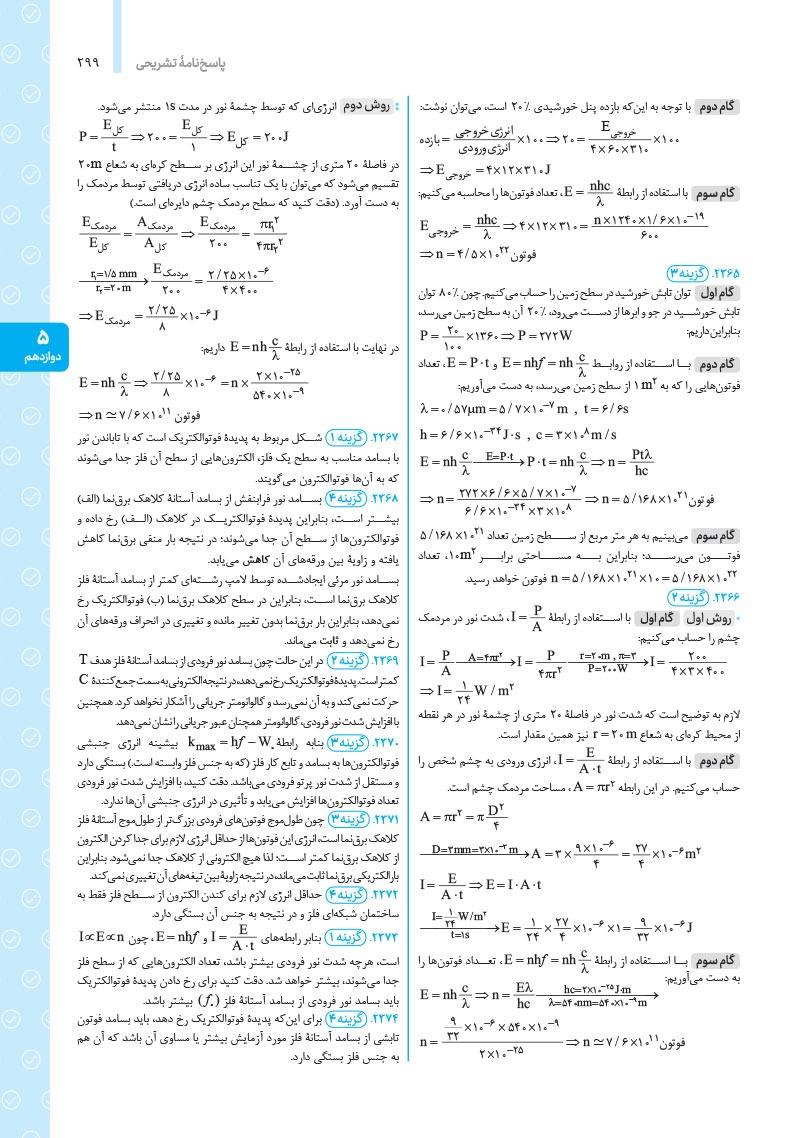 پاسخ‌نامهٔ تشریحی ۲۹۹
گام دوم با توجه به این‌که بازده پنل خورشیدی ۲۰٪ است، می‌توان نوشت:
بازده = انرژی خروجی / انرژی ورودی × ۱۰۰ ⇒ ۲۰ = Eخروجی / ۴×۶۰×۳۱۰ × ۱۰۰
⇒ Eخروجی = ۴×۱۲×۳۱۰J
گام سوم با استفاده از رابطهٔ E = nhc/λ، تعداد فوتون‌ها را محاسبه می‌کنیم:
Eخروجی = nhc/λ ⇒ ۴×۱۲×۳۱۰ = n×۱۲۴۰×۱/۶×۱۰⁻¹⁹ / ۶۰۰
⇒ n = ۴/۵×۱۰²² فوتون
۲۲۶۵. گزینه ۳
گام اول توان تابش خورشید در سطح زمین را حساب می‌کنیم. چون ۸۰٪ توان
تابش خورشــید در جو و ابرها از دســت می‌رود، ۲۰٪ آن به سطح زمین می‌رسد،
بنابراین داریم: P = ۲۰/۱۰۰ × ۱۳۶۰ ⇒ P = ۲۷۲W
گام دوم بــا اســتفاده از روابــط E = nhf = nh c/λ و E = P·t، تعداد
فوتون‌هایی را که به ۱m² از سطح زمین می‌رسد، به دست می‌آوریم:
λ = ۰/۵۷μm = ۵/۷×۱۰⁻⁷m , t = ۶/۶s
h = ۶/۶×۱۰⁻³⁴J·s , c = ۳×۱۰⁸m/s
E = nh c/λ —E=P·t→ P·t = nh c/λ ⇒ n = Ptλ/hc
⇒ n = ۲۷۲×۶/۶×۵/۷×۱۰⁻⁷ / ۶/۶×۱۰⁻³⁴×۳×۱۰⁸ ⇒ n = ۵/۱۶۸×۱۰²¹ فوتون
گام سوم می‌بینیم به هر متر مربع از ســطح زمین تعداد ۵/۱۶۸×۱۰²¹
فوتــون می‌رســد؛ بنابراین بــه مســاحتی برابــر ۱۰m²، تعداد
n = ۵/۱۶۸×۱۰²¹×۱۰ = ۵/۱۶۸×۱۰²² فوتون خواهد رسید.
۲۲۶۶. گزینه ۲
روش اول گام اول بــا اســتفاده از رابطهٔ I = P/A، شدت نور در مردمک
چشم را حساب می‌کنیم:
I = P/A —A=۴πr²→ I = P/۴πr² —r=۲۰m , π=۳ , P=۲۰۰W→ I = ۲۰۰ / ۴×۳×۴۰۰
⇒ I = ۱/۲۴ W/m²
لازم به توضیح است که شدت نور در فاصلهٔ ۲۰ متری از چشمهٔ نور در هر نقطه
از محیط کره‌ای به شعاع r = ۲۰m نیز همین مقدار است.
گام دوم بــا اســتفاده از رابطهٔ I = E/A·t، انرژی ورودی به چشم شخص را
حساب می‌کنیم. در این رابطه A = πr²، مساحت مردمک چشم است.
A = πr² = π D²/۴
—D=۳mm=۳×۱۰⁻³m→ A = ۳× ۹×۱۰⁻⁶/۴ = ۲۷/۴ ×۱۰⁻⁶m²
I = E/A·t ⇒ E = I·A·t
—I=۱/۲۴ W/m² , t=۱s→ E = ۱/۲۴ × ۲۷/۴ ×۱۰⁻⁶×۱ = ۹/۳۲ ×۱۰⁻⁶J
گام سوم بــا اســتفاده از رابطهٔ E = nhf = nh c/λ، تعــداد فوتون‌ها را
به دست می‌آوریم:
E = nh c/λ ⇒ n = Eλ/hc —hc=۲×۱۰⁻²⁵J·m , λ=۵۴۰nm=۵۴۰×۱۰⁻⁹m→
n = ۹/۳۲ ×۱۰⁻⁶×۵۴۰×۱۰⁻⁹ / ۲×۱۰⁻²⁵ ⇒ n ≃ ۷/۶×۱۰¹¹ فوتون
روش دوم انرژی‌ای که توسط چشمهٔ نور در مدت ۱s منتشر می‌شود.
P = Eکل/t ⇒ ۲۰۰ = Eکل/۱ ⇒ Eکل = ۲۰۰J
در فاصلهٔ ۲۰ متری از چشــمهٔ نور این انرژی بر ســطح کره‌ای به شعاع ۲۰m
تقسیم می‌شود که می‌توان با یک تناسب ساده انرژی دریافتی توسط مردمک را
به دست آورد. (دقت کنید که سطح مردمک چشم دایره‌ای است.)
Eمردمک/Eکل = Aمردمک/Aکل ⇒ Eمردمک/۲۰۰ = πr₁²/۴πr₂²
—r₁=۱/۵mm , r₂=۲۰m→ Eمردمک/۲۰۰ = ۲/۲۵×۱۰⁻⁶ / ۴×۴۰۰
⇒ Eمردمک = ۲/۲۵/۸ ×۱۰⁻⁶J
در نهایت با استفاده از رابطهٔ E = nh c/λ داریم:
E = nh c/λ ⇒ ۲/۲۵/۸ ×۱۰⁻⁶ = n× ۲×۱۰⁻²⁵ / ۵۴۰×۱۰⁻⁹
⇒ n ≃ ۷/۶×۱۰¹¹ فوتون
۲۲۶۷. گزینه ۱ شــکل مربوط به پدیدهٔ فوتوالکتریک است که با تاباندن نور
با بسامد مناسب به سطح یک فلز، الکترون‌هایی از سطح آن فلز جدا می‌شوند
که به آن‌ها فوتوالکترون می‌گویند.
۲۲۶۸. گزینه ۴ بســامد نور فرابنفش از بسامد آستانهٔ کلاهک برق‌نما (الف)
بیشــتر اســت، بنابراین پدیدهٔ فوتوالکتریــک در کلاهک (الــف) رخ داده و
فوتوالکترون‌ها از ســطح آن جدا می‌شوند؛ در نتیجه بار منفی برق‌نما کاهش
یافته و زاویهٔ بین ورقه‌های آن کاهش می‌یابد.
بســامد نور مرئی ایجادشــده توسط لامپ رشــته‌ای کمتر از بسامد آستانهٔ فلز
کلاهک برق‌نما اســت، بنابراین در سطح کلاهک برق‌نما (ب) فوتوالکتریک رخ
نمی‌دهد، بنابراین بار برق‌نما بدون تغییر مانده و تغییری در انحراف ورقه‌های آن
رخ نمی‌دهد و ثابت می‌ماند.
۲۲۶۹. گزینه ۲ در این حالت چون بسامد نور فرودی از بسامد آستانهٔ فلز هدف T
کمتر است، پدیدهٔ فوتوالکتریک رخ نمی‌دهد، در نتیجه الکترونی به سمت جمع‌کنندهٔ C
حرکت نمی‌کند و به آن نمی‌رسد و گالوانومتر جریانی را آشکار نخواهد کرد. همچنین
با افزایش شدت نور فرودی، گالوانومتر همچنان عبور جریانی را نشان نمی‌دهد.
۲۲۷۰. گزینه ۳ بنابه رابطهٔ kmax = hf − W₀ بیشینه انرژی جنبشی
فوتوالکترون‌ها به بسامد و تابع کار فلز (که به جنس فلز وابسته است) بستگی دارد
و مستقل از شدت نور پرتو فرودی می‌باشد. دقت کنید، با افزایش شدت نور فرودی
تعداد فوتوالکترون‌ها افزایش می‌یابد و تأثیری در انرژی جنبشی آن‌ها ندارد.
۲۲۷۱. گزینه ۳ چون طول‌موج فوتون‌های فرودی بزرگ‌تر از طول‌موج آستانهٔ فلز
کلاهک برق‌نما است، انرژی این فوتون‌ها از حداقل انرژی لازم برای جدا کردن الکترون
از کلاهک برق‌نما کمتر اســت؛ لذا هیچ الکترونی از کلاهک جدا نمی‌شود. بنابراین
بار الکتریکی برق‌نما ثابت می‌ماند، در نتیجه زاویهٔ بین تیغه‌های آن تغییری نمی‌کند.
۲۲۷۲. گزینه ۴ حداقل انرژی لازم برای کندن الکترون از ســطح فلز فقط به
ساختمان شبکه‌ای فلز و در نتیجه به جنس آن بستگی دارد.
۲۲۷۳. گزینه ۱ بنابر رابطه‌های I = E/A·t و E = nhf، چون I∝E∝n
است، هرچه شدت نور فرودی بیشتر باشد، تعداد الکترون‌هایی که از سطح فلز
جدا می‌شوند، بیشتر خواهد شد. دقت کنید برای رخ دادن پدیدهٔ فوتوالکتریک
باید بسامد نور فرودی از بسامد آستانهٔ فلز (f₀) بیشتر باشد.
۲۲۷۴. گزینه ۴ برای این‌که پدیدهٔ فوتوالکتریک رخ دهد، باید بسامد فوتون
تابشی از بسامد آستانهٔ فلز مورد آزمایش بیشتر یا مساوی آن باشد که آن هم
به جنس فلز بستگی دارد.
۵
دوازدهم